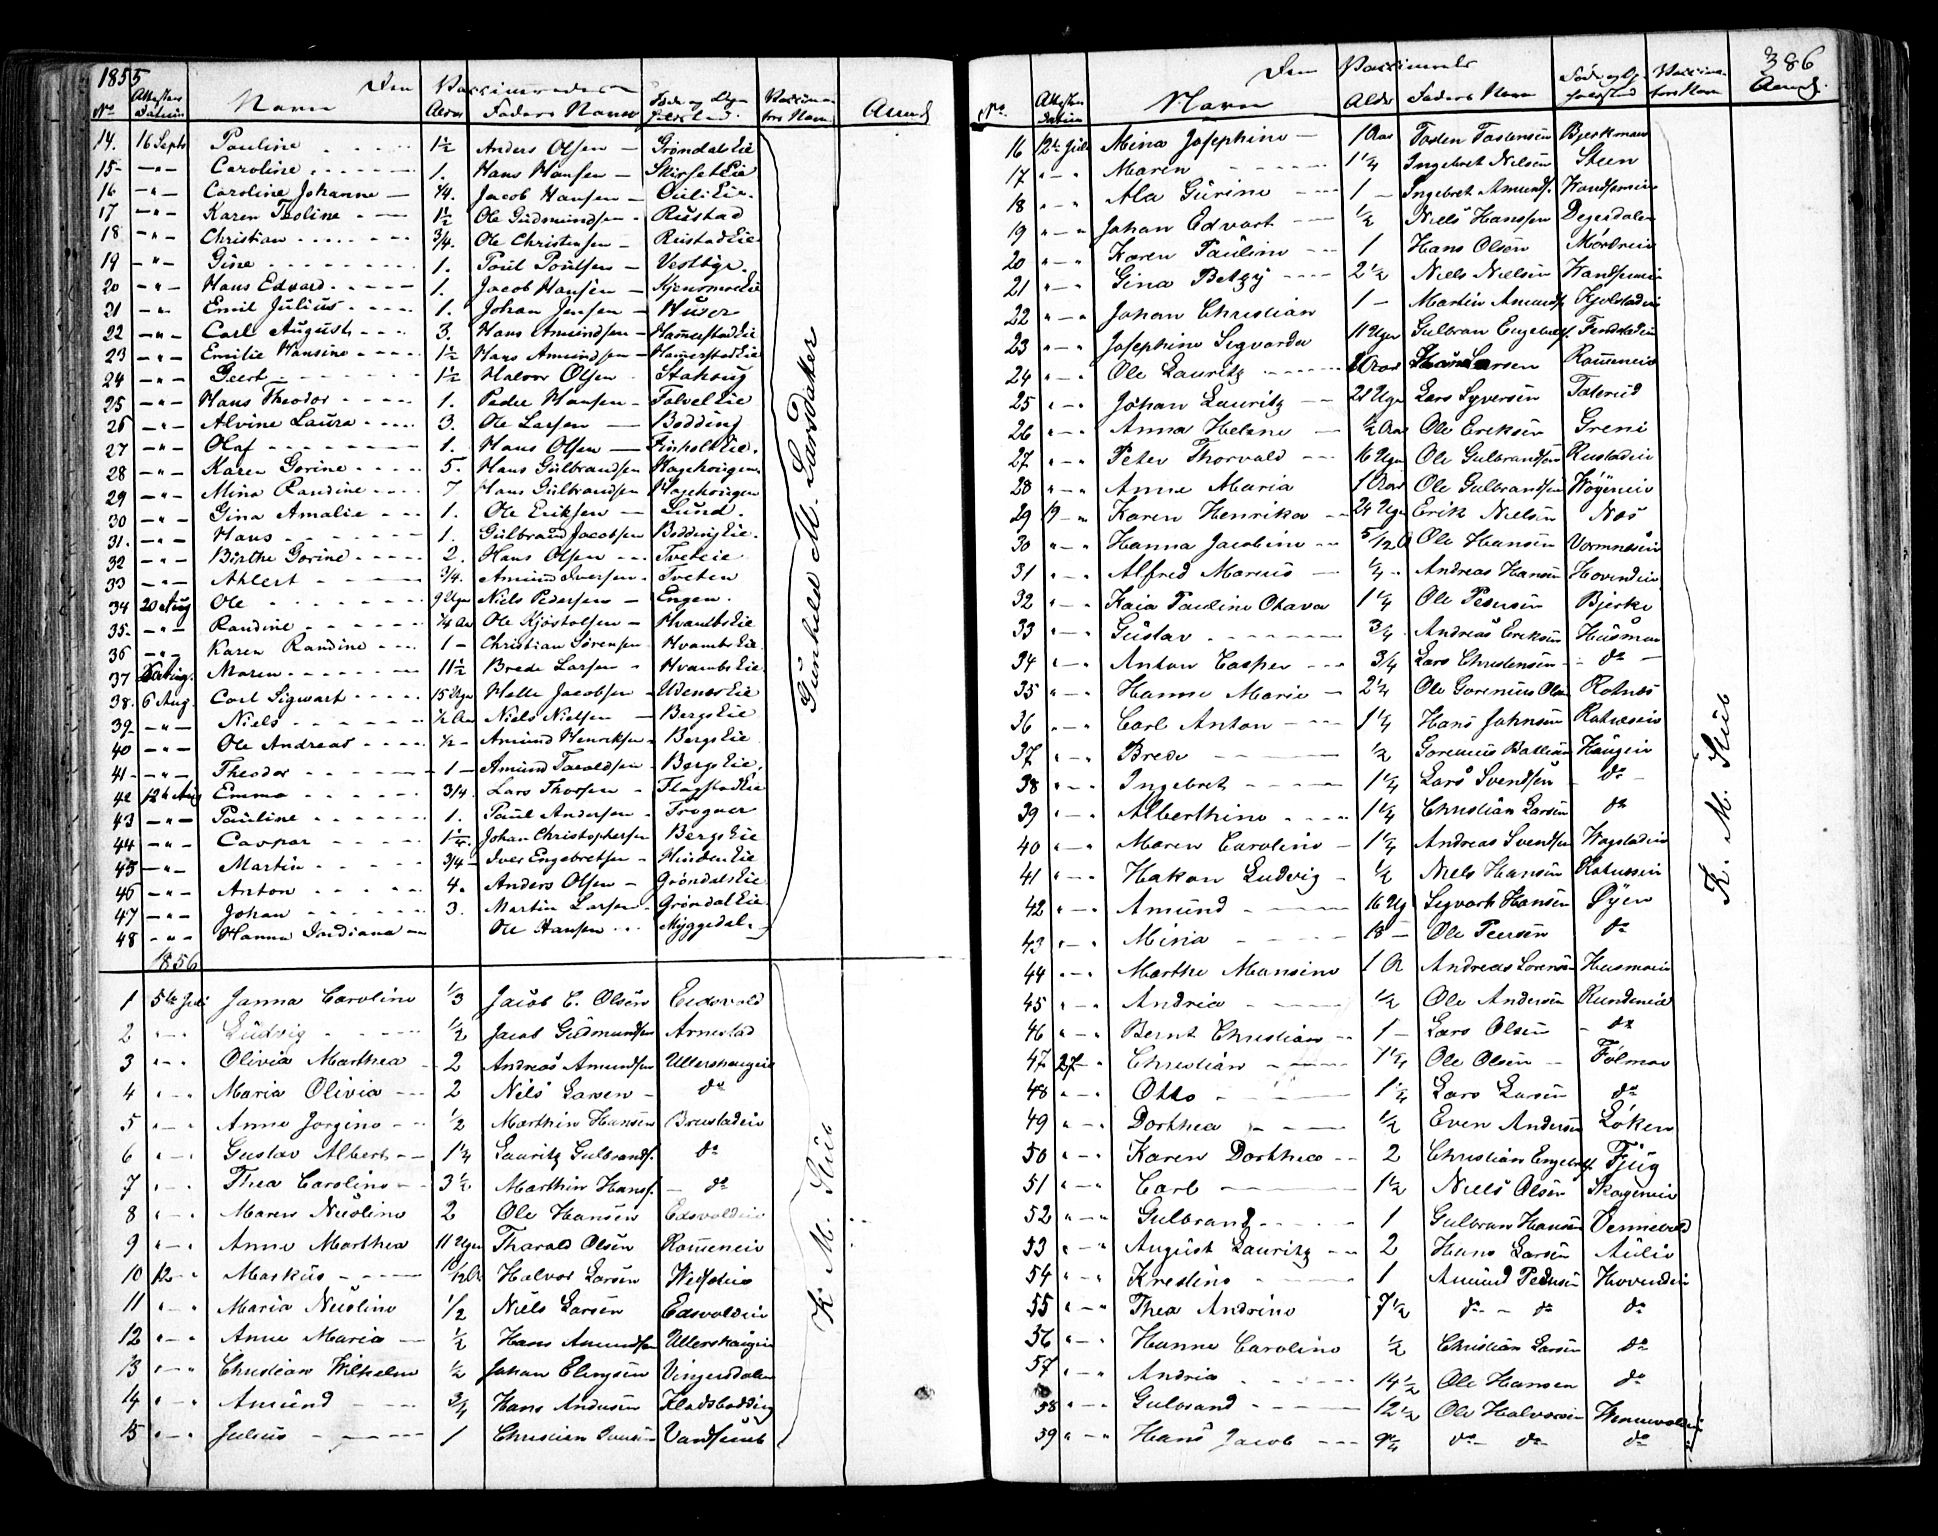 1855
Den Vaccineredes
No Attestens Datum Navn Alder Faders Navn Føde og Op-holdsted. Vaccina-tors Navn Anm.
14. 16 Septr Pauline 1½ Anders Olsen Grøndals Eie
15 Caroline 1. Hans Hansen Skirset Eie
16 Caroline Johanne ¼. Jacob Hansen Ouli Eie.
17 Karen Teoline 1½ Ole Gudmundsen Rustad
18 Christian ¾. Ole Christensen Rustad Eie
19 Gine 1. Poul Poulsen Vestbye.
20 Hans Edvard 1. Jacob Hansen Kjensmoe Eie
21 Emil Julius 1. Johan Jensen Huser
22 Carl August 3. Hans Amundsen Hamerstad Eie
23 Emilie Hansine 1½ Hans Amundsen Hamerstad Eie
24 Geert 1½ Halvor Olsen Staksrug
25 Hans Theodor 1. Peder Hansen Tolvel Eie
26 Alvine Laura 3. Ole Larsen Bodding
27 Olaf 1. Hans Olsen Finholt Eie.
28 Karen Gorine 5. Hans Gulbrandsen Hagehougen
29 Mina Randine 7 Hans Gulbrandsen Hagehougen
30 Gina Amalie 1. Ole Eriksen Lund.
31. Hans 1. Gulbrand Jacobsen Bodding Eie.
32 Birthe Gorine 2. Hans Olsen Tveteie
33 Ahlert ¾. Amund Iversen Tveten
34 20 Aug Ole 9 Uger Niels Pedersen Engen.
35. Randine ¼ Aar Ole Kjøstolsen Hvambs Eie
36 Karen Randine 1 Christian Sørensen Hvambs Eie
37 Maren 11½ Brede Larsen Hvambs Eie
38. 6 Aug. Carl Sigwart 15 Uger Helle Jacobsen Udenes Eie
39 Niels ½ Aar Niels Nielsen Bergs Eie
40 Ole Andreas ½ Amund Henriksen Bergs Eie
41 Theodor 1 Amund Taraldsen Bergs Eie.
42 12te Aug Emma ¾. Lars Thorsen Flagstad Eie
43 Pauline 1. Paul Andersen Trogner
44 Caspar 1¼. Johan Christophersen Bergs Eie
45 Martin ¾ Iver Engebretsen Hinden Eie
46 Anton 4. Anders Olsen Grøndals Eie
47 Johan 3. Martin Larsen Grøndal Eie
48 Hanna Jordiana Ole Hansen Myggedal
Gunhild M. Sandaker
1856
1 5te Juli Janna Caroline ⅓ Jacob C. Olsen Eidsvold
2 Ludvig ½ Jacob Gudmundsen Arnestad
3 Olivia Marthea 2 Andreas Amundsen Ullershaugeie
4 Maria Olivia 2 Nils Larsen do
5 Anne Jorgine ½ Marthin Hansen Brustadeie
6 Gustav Albert 1¼ Lauritz Gulbrands. do
7 Thea Caroline 3½ Marthin Hans. do
8 Maren Nicoline 2 Ole Hansen Edsvoldeie
9 Anne Marthea 11 Uger Tharald Olsen Rameneie
10 12 Markus 10/12 A Halvor Larsen
11 Maria Nicoline ½ Niels Larsen Edsvoldeie
12 Anne Maria ½ Hans Amundsen Ullershaugeie
13 Christian Wilhelm ½ Johan Elingsen Vingersdalen
14 Amund ¾ Hans Andersen Kladsbodding
15 Julius 1 Christian
K. M. Stub
386
Den Vaccineredes
No. Attestens Datum Navn Alder Faders Navn Føde og Op-holdsted Vaccina-tors Navn Anm.
16 12te Juli Mina Josephine 1 Aar Tosten Tostensen Bjerkenaas
17 Maren 1¼ Ingebret Nilsen Steen
18 Ala Gurine 1 Ingebret Amunds.
19 Johan Edvart ½ Niels Hanssen Degerdalen
20 Karen Pauline 1 Hans Olsen Mordreie
21 Gina Betzy 2½ Niels Nielsen
22 Johan Christian 1 Martin Amunds. Kjolstadeie
23 Josephine Segvarda 11 Uger Gulbran Engebrets. Fendstadeie
24 Ole Lauritz Aar Larsen Rameneie
25 Johan Lauritz 21 Uger Lars Syversen Taterud
26 Anna Helene ½ Aar Ole Eriksen Greni
27 Peter Thorvald 16 Uger Ole Gulbrandsen Rustadeie
28 Anne Maria 1 Aar Ole Gulbrandsen Høyeneie
29 19 Karen Henrika 24 Uger Erik Nielsen Nas
30 Hanna Jacobine 5/12 A Ole Hansen Vormneseie
31 Alfred Marcus ¼ Andreas Hansen Hovindeie
32 Kaia Pauline Otava 1¼ Ole Pedersen Bjerke
33 Gustav ¾ Andreas Eriksen Husman
34 Anton Casper ¾ Lars Christensen do
35 Hanne Marie 2¼ Ole Gorenius Olsen Rotnes
36 Carl Anton 1¼ Hans Johnsen Rotneseie
37 Brede ½ Gorenius Haugeie
38 Ingebret 1¼ Lars Svendsen do
39 Alberthine 1¼ Christian Larsen do
40 Maren Caroline 1¼ Andreas Svendsen Wagstadeie
41 Hakon Ludvig ½ Niels Hansen Rotneseie
42 Amund 16 Ug Segvart Hansen Øyen
43 Mina 18 Ole Peersen do
44 Marthe Mansine 1 A Andreas Sorensen Husmoeie
45 Andrea ½ Ole Andersen Rundeneie
46 Bernt Christian 1 Lars Olsen do
47 27 Christian 1¼ Ole Olsen Folmoe
48 Otto 1¼ Lars Larsen do
49 Dorthea ½ Even Andersen Løken
50 Karen Dorthea 2 Christian Engebrets. Fjug
51 Carl 1½ Niels Olsen Skogeneie
52 Gulbrand 1 Gulbran Hansen Vennevold
53 August Lauritz 2 Hans Larsen Aulie
54 Kristine 1 Amund Pedersen Hovindeie
55 Thea Andrine 7½ do do do
56 Hanne Caroline ½ Christian Larsen do
57 Andrea 14½ Ole Hansen do
58 Gulbrand 12½ Ole Halvorsen Wennevoldeie
59 Hans Jacob 9¼ do do do
K. M. Stub